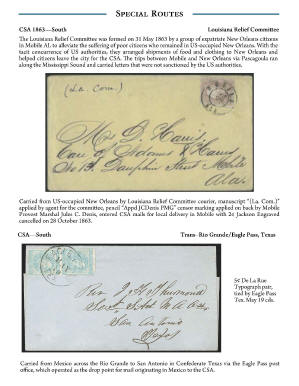 SPECIAL ROUTES
CSA 1863—South Louisiana Relief Committee
The Louisiana Relief Committee was formed on 31 May 1863 by a group of expatriate New Orleans citizens
in Mobile AL to alleviate the suffering of poor citizens who remained in US-occupied New Orleans. With the
tacit concurrence of US authorities, they arranged shipments of food and clothing to New Orleans and
helped citizens leave the city for the CSA. The trips between Mobile and New Orleans via Pascagoula ran
along the Mississippi Sound and carried letters that were not sanctioned by the US authorities.
(La. Com.)
Mrs D. Harris,
Care of
No 13. Dauphin Street Mobile
Ala.
Carried from US-occupied New Orleans by Louisiana Relief Committee courier, manuscript "(La. Com.)"
applied by agent for the committee, pencil "Appd JCDenis PMG" censor marking applied on back by Mobile
Provost Marshal Jules C. Denis, entered CSA mails for local delivery in Mobile with 2¢ Jackson Engraved
cancelled on 28 October 1863.
CSA—South Trans-Rio Grande/Eagle Pass, Texas
Rev J. H. Thurmond
San Antonio
Texas
5¢ De La Rue
Typograph pair,
tied by Eagle Pass
Tex. May 19 cds.
Carried from Mexico across the Rio Grande to San Antonio in Confederate Texas via the Eagle Pass post
office, which operated as the drop point for mail originating in Mexico to the CSA.